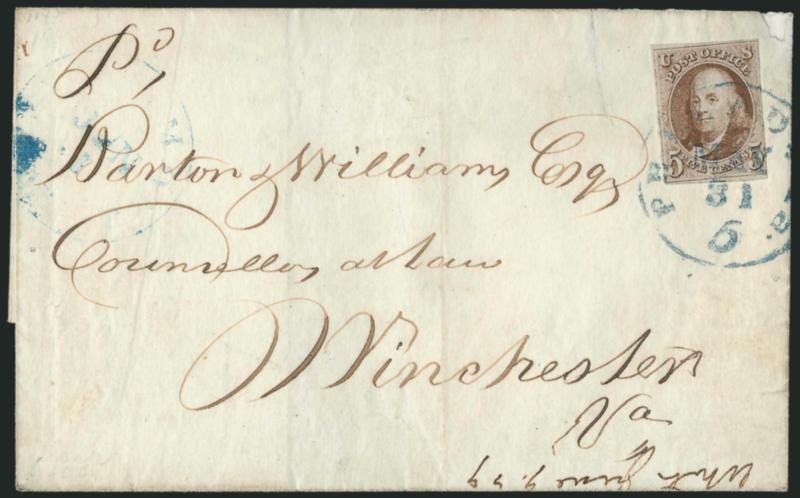 Pd
Barton & Williams Esqs
Counsellors at Law
Winchester
Va
U S
POST OFFICE
5 FIVE CENTS 5
PHILAD
31
5